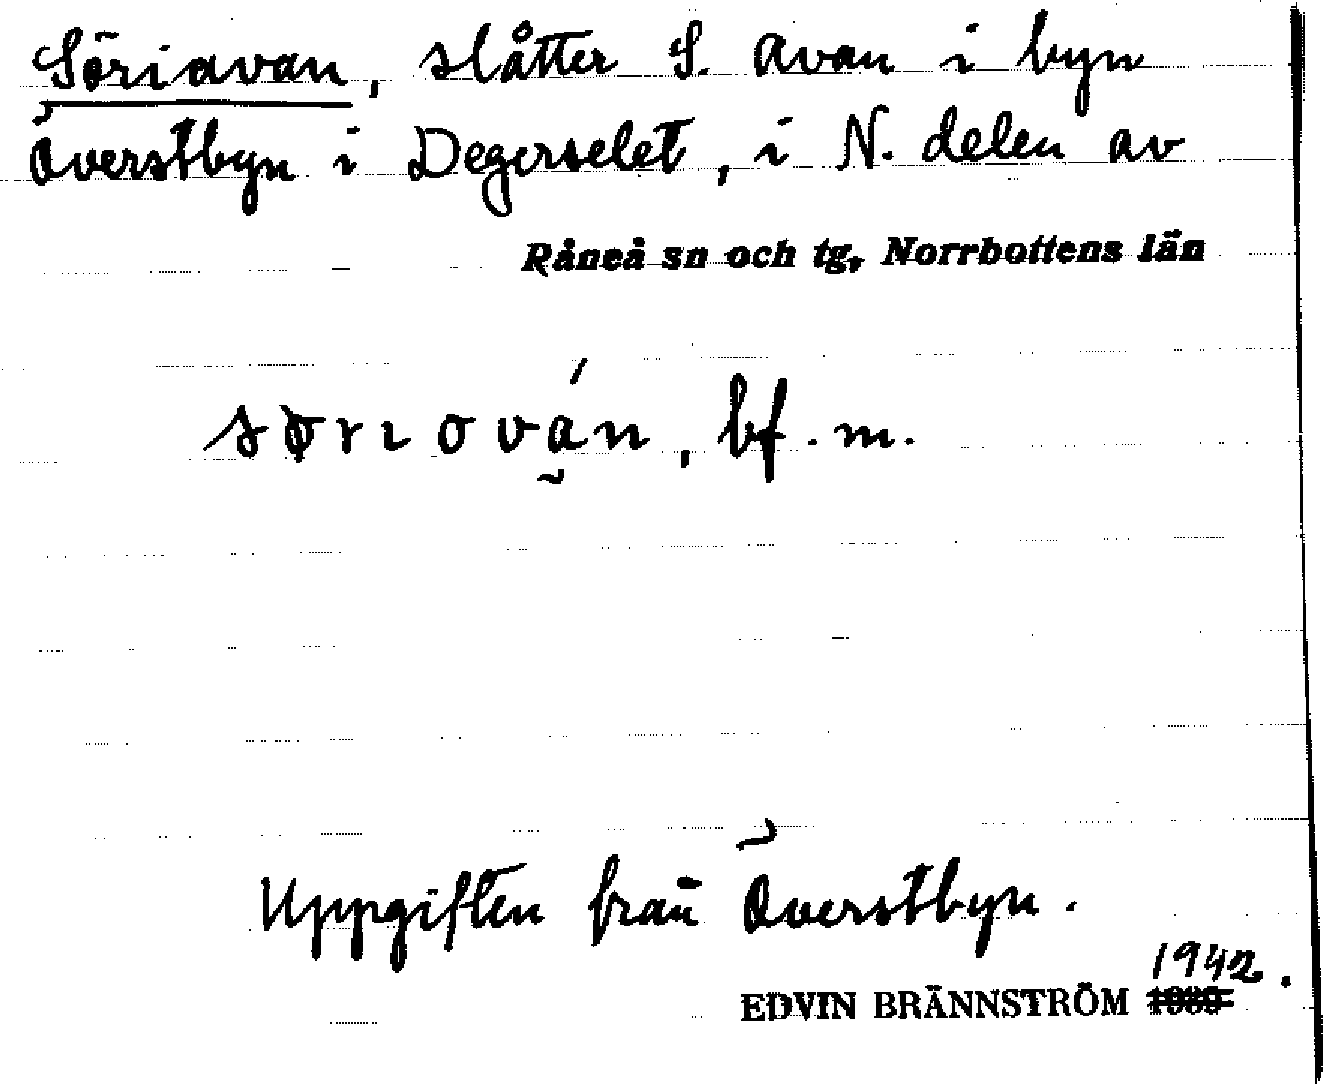 Söriavan, slåtter S. avan i byn
Överstbyn i Degerselet, i N. delen av
Råneå sn och tg, Norrbottens län
sørıován, bf. m.
Uppgiften från Överstbyn.
1942.
EDVIN BRÄNNSTRÖM 1939